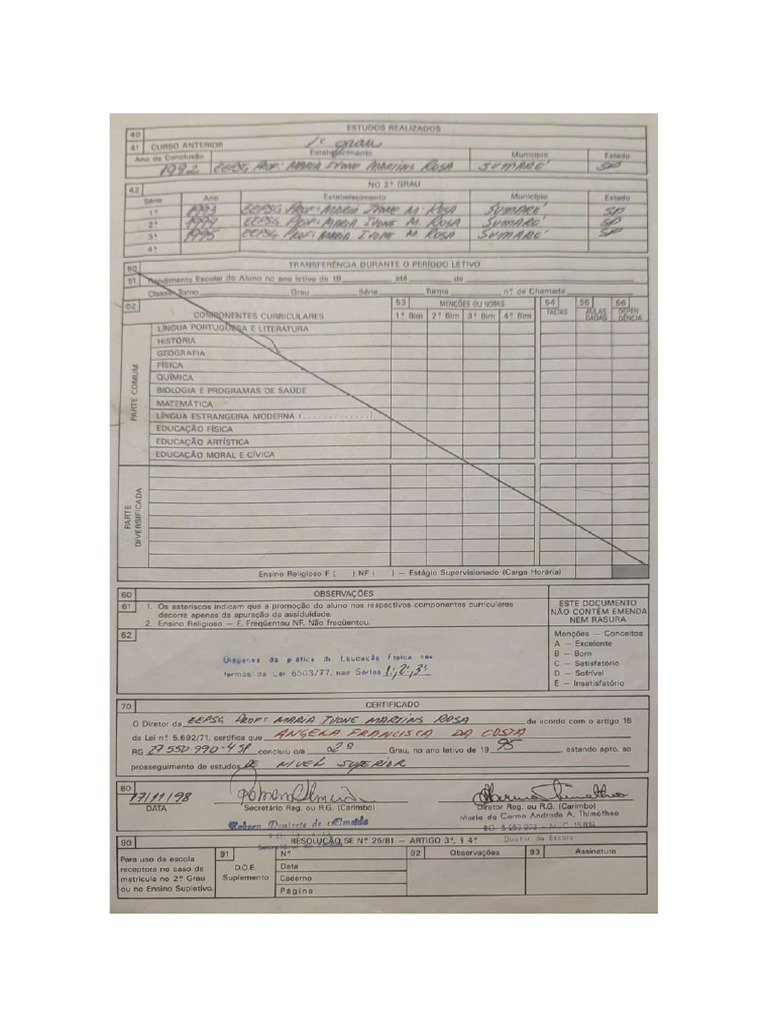 40 ESTUDOS REALIZADOS
41 CURSO ANTERIOR 1º grau
Ano de Conclusão Estabelecimento Município Estado
1992 EEPSG PROFª MARIA IVONE MARTINS ROSA SUMARÉ SP
42 NO 2º GRAU
Série Ano Estabelecimento Município Estado
1ª 1993 EEPSG PROFª MARIA IVONE M. ROSA SUMARÉ SP
2ª 1994 EEPSG PROFª MARIA IVONE M. ROSA SUMARÉ SP
3ª 1995 EEPSG PROFª MARIA IVONE M. ROSA SUMARÉ SP
4ª
50 TRANSFERÊNCIA DURANTE O PERÍODO LETIVO
51 Rendimento Escolar do Aluno no ano letivo de 19 até de
Classe Turno Grau Série Turma nº de Chamada
52 COMPONENTES CURRICULARES 53 MENÇÕES OU NOTAS 54 FALTAS 55 AULAS DADAS 56 DEPENDÊNCIA
1º Bim 2º Bim 3º Bim 4º Bim
PARTE COMUM
LÍNGUA PORTUGUESA E LITERATURA
HISTÓRIA
GEOGRAFIA
FÍSICA
QUÍMICA
BIOLOGIA E PROGRAMAS DE SAÚDE
MATEMÁTICA
LÍNGUA ESTRANGEIRA MODERNA (..............)
EDUCAÇÃO FÍSICA
EDUCAÇÃO ARTÍSTICA
EDUCAÇÃO MORAL E CÍVICA
PARTE DIVERSIFICADA
Ensino Religioso F ( ) NF ( ) — Estágio Supervisionado (Carga Horária)
60 OBSERVAÇÕES
61 1. Os asteriscos indicam que a promoção do aluno nos respectivos componentes curriculares
decorre apenas da apuração da assiduidade.
2. Ensino Religioso — F. Freqüentou NF. Não freqüentou.
ESTE DOCUMENTO
NÃO CONTÉM EMENDA
NEM RASURA
62
Dispensa da prática de Educação Física nos
termos da Lei 6503/77, nas Séries 1ª, 2ª, 3ª
Menções — Conceitos
A — Excelente
B — Bom
C — Satisfatório
D — Sofrível
E — Insatisfatório
70 CERTIFICADO
O Diretor da EEPSG PROFª MARIA IVONE MARTINS ROSA de acordo com o artigo 16
da Lei nº 5.692/71, certifica que ANGELA FRANCISCA DA COSTA
RG 27.550.990-4 SP concluiu o/a 2º Grau, no ano letivo de 19 95, estando apto, ao
prosseguimento de estudos DE NIVEL SUPERIOR
80
17/11/98
DATA
Secretário Reg. ou R.G. (Carimbo)
Diretor Reg. ou R.G. (Carimbo)
Maria do Carmo Andrade A. Thimótheo
Diretor de Escola
90 RESOLUÇÃO SE Nº 25/81 — ARTIGO 3º, § 4º
Para uso da escola
receptora no caso de
matrícula no 2º Grau
ou no Ensino Supletivo.
91 D.O.E.
Suplemento
Nº
Data
Caderno
Página
92 Observações
93 Assinatura